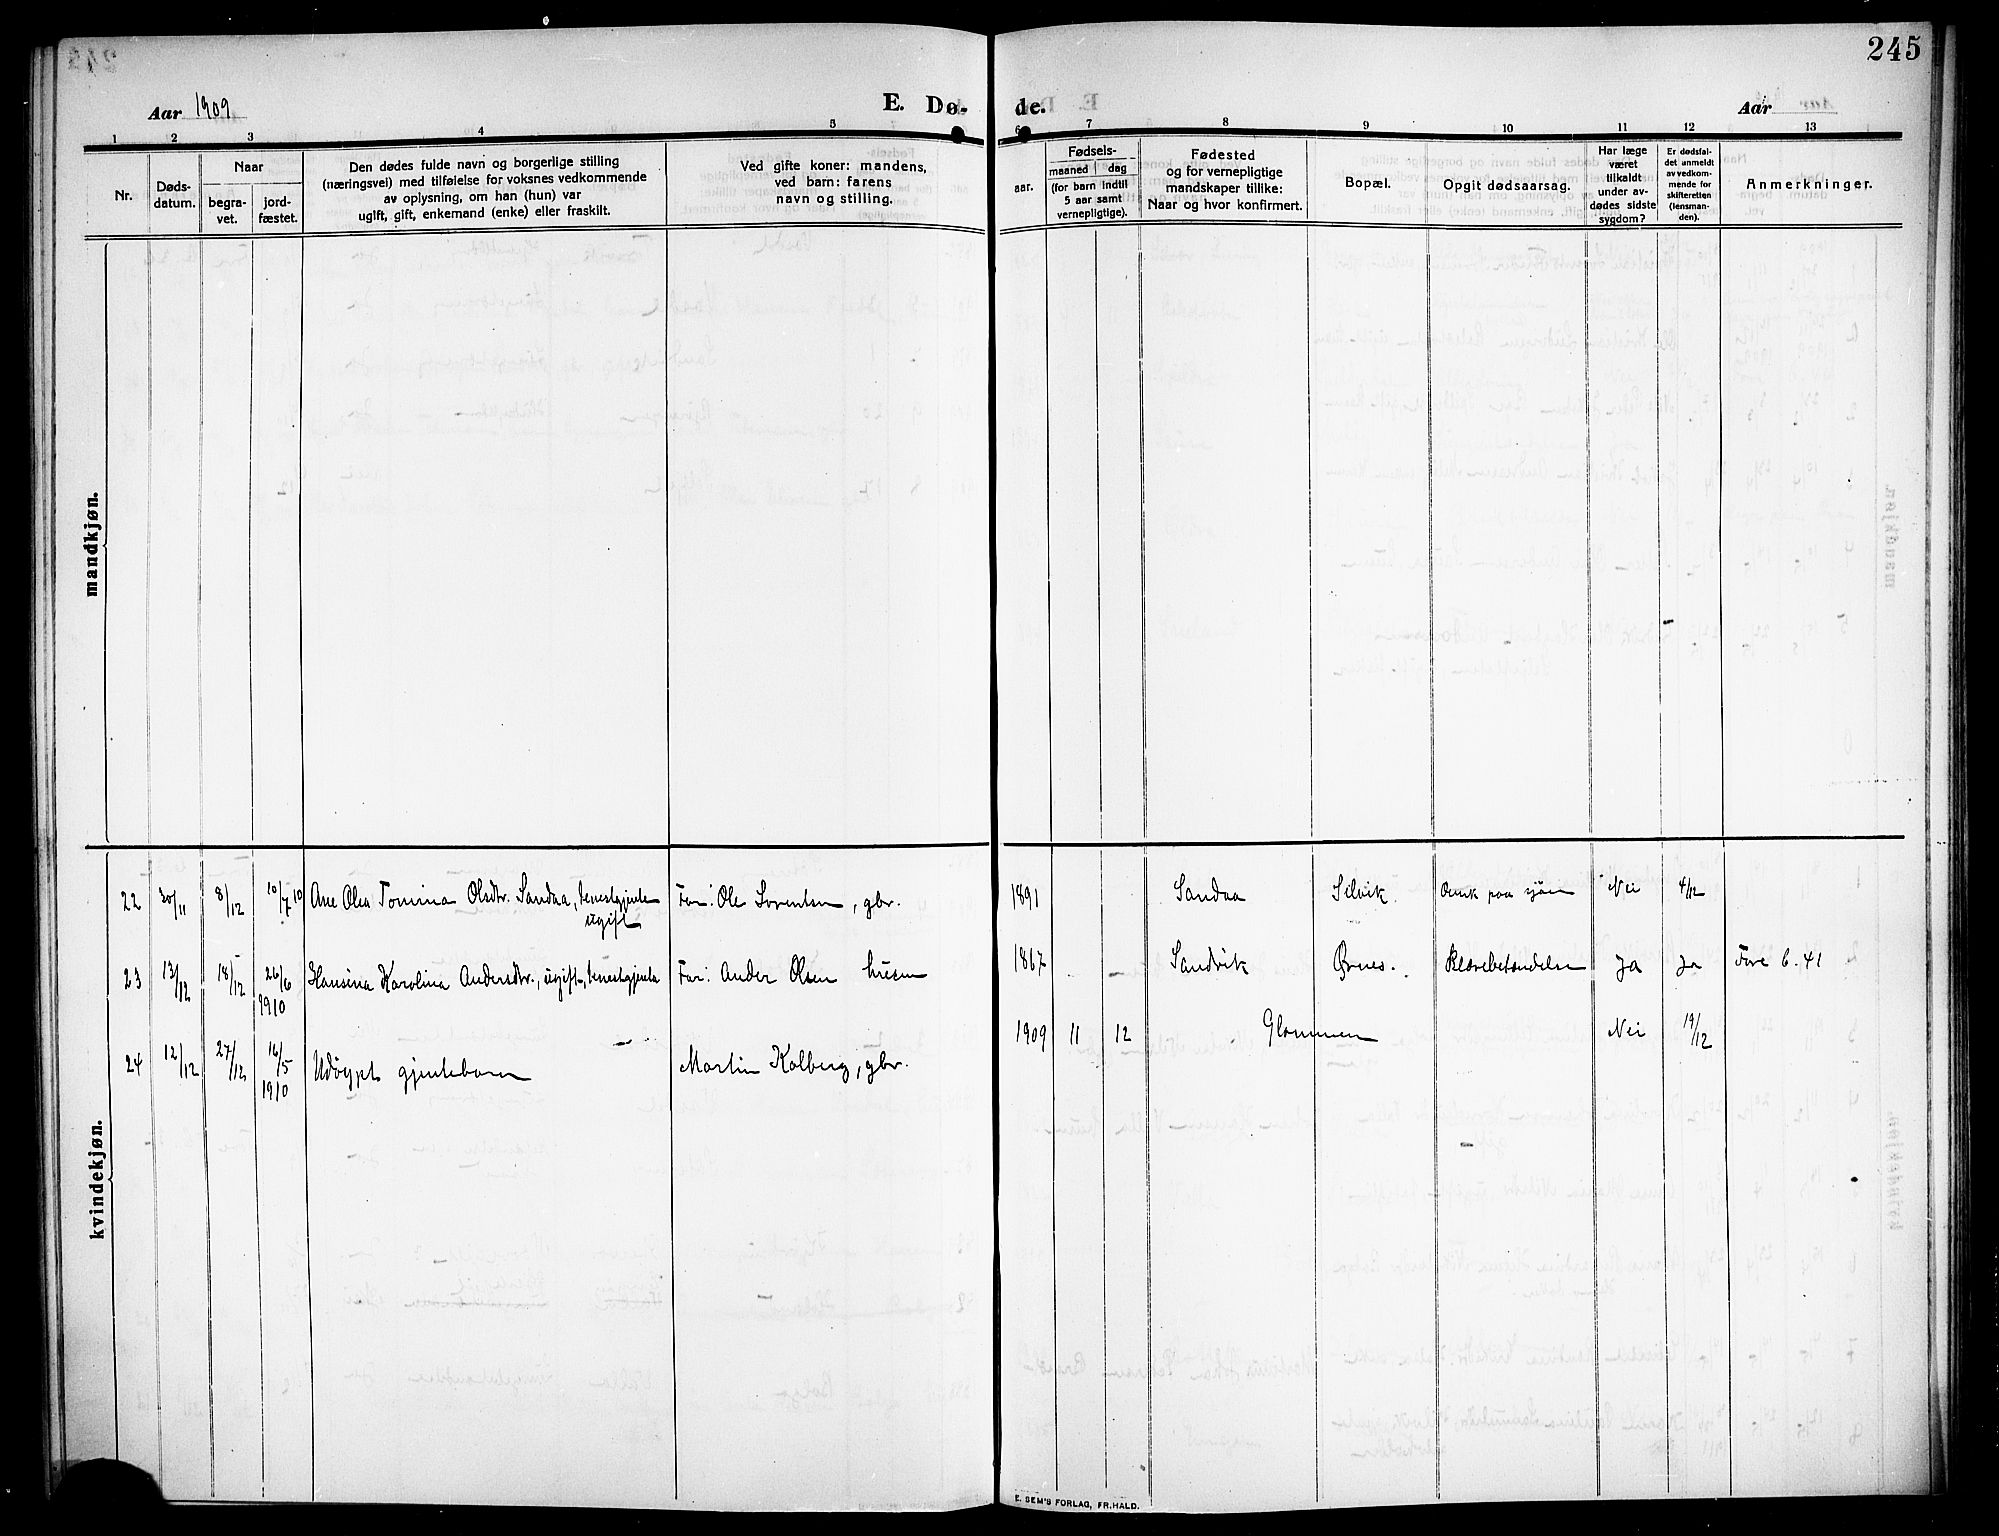 245
Aar 1909
E. Dø-
de.
Aar
1 2 3 4 5 6 7 8 9 10 11 12 13
Nr.
Døds-
datum.
Naar
begra-
vet.
jord-
fæstet.
Den dødes fulde navn og borgerlige stilling
(næringsvei) med tilføielse for voksnes vedkommende
av oplysning, om han (hun) var
ugift, gift, enkemand (enke) eller fraskilt.
Ved gifte koner: mandens,
ved barn: farens
navn og stilling.
Fødsels-
aar.
maaned dag
(for barn indtil
5 aar samt
vernepligtige).
Fødested
og for vernepligtige
mandskaper tillike:
Naar og hvor konfirmert.
Bopæl.
Opgit dødsaarsag.
Har læge
været
tilkaldt
under av-
dødes sidste
sygdom?
Er dødsfal-
det anmeldt
av vedkom-
mende for
skifteretten
(lensman-
den).
Anmerkninger.
mandkjøn.
22 30/11 8/12 10/7 10 Ane Olea Tomina Olsdtr. Sandaa, tenestgjente Far: Ole Lorentsen, gbr. 1891 Sandaa Selvik. Omk paa sjøen Nei 4/12
ugift
23 13/12 18/12 26/6 Hansina Karolina Andersdtr., ugift, tenestgjente Far: Ander Olsen husm 1867 - - Sandvik Ørnes. Blærebetændelse Ja Ja Fore 6.41
1910
24 12/12 27/12 16/5 Udöypt gjentebarn Martin Kolberg, gbr. 1909 11 12 Glommen Nei 19/12
1910
kvindekjøn.
E. SEM'S FORLAG, FR.HALD.